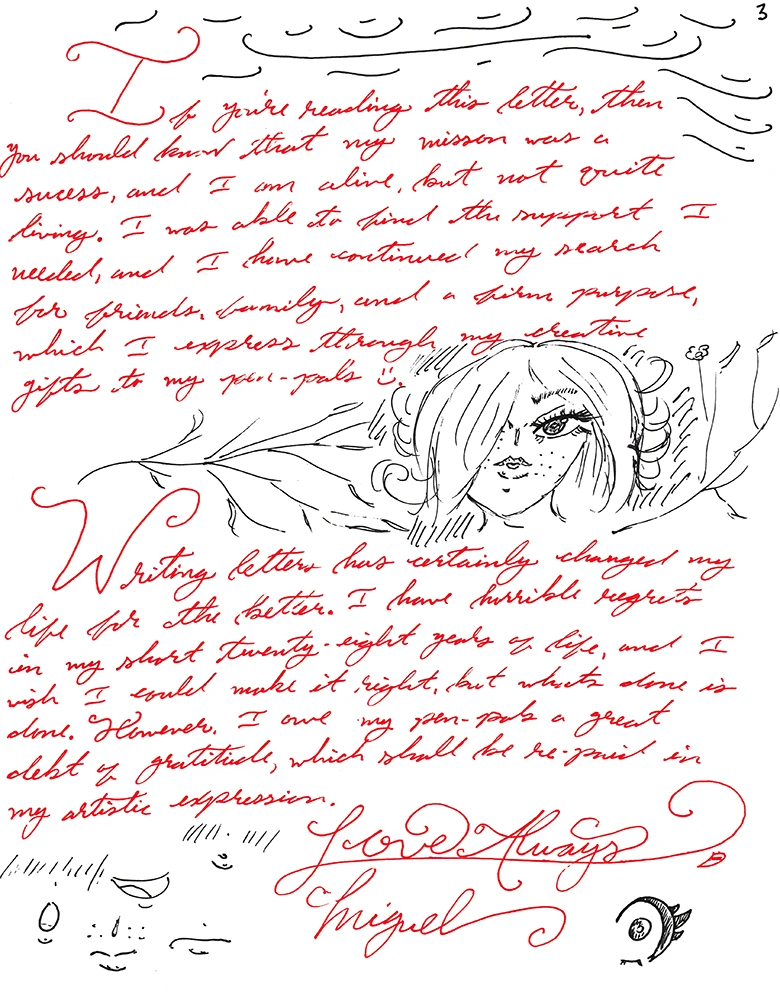 3
If you're reading this letter, then
you should know that my misson was a
sucess, and I am alive, but not quite
living. I was able to find the support I
needed, and I have continued my search
for friends, family, and a firm purpose,
which I express through my creative
gifts to my pen-pals
Writing letters has certainly changed my
life for the better. I have horrible regrets
in my short twenty-eight years of life, and I
wish I could make it right, but whats done is
done. However, I owe my pen-pals a great
debt of gratitude, which shall be re-paid in
my artistic expression.
Love Always
Miguel